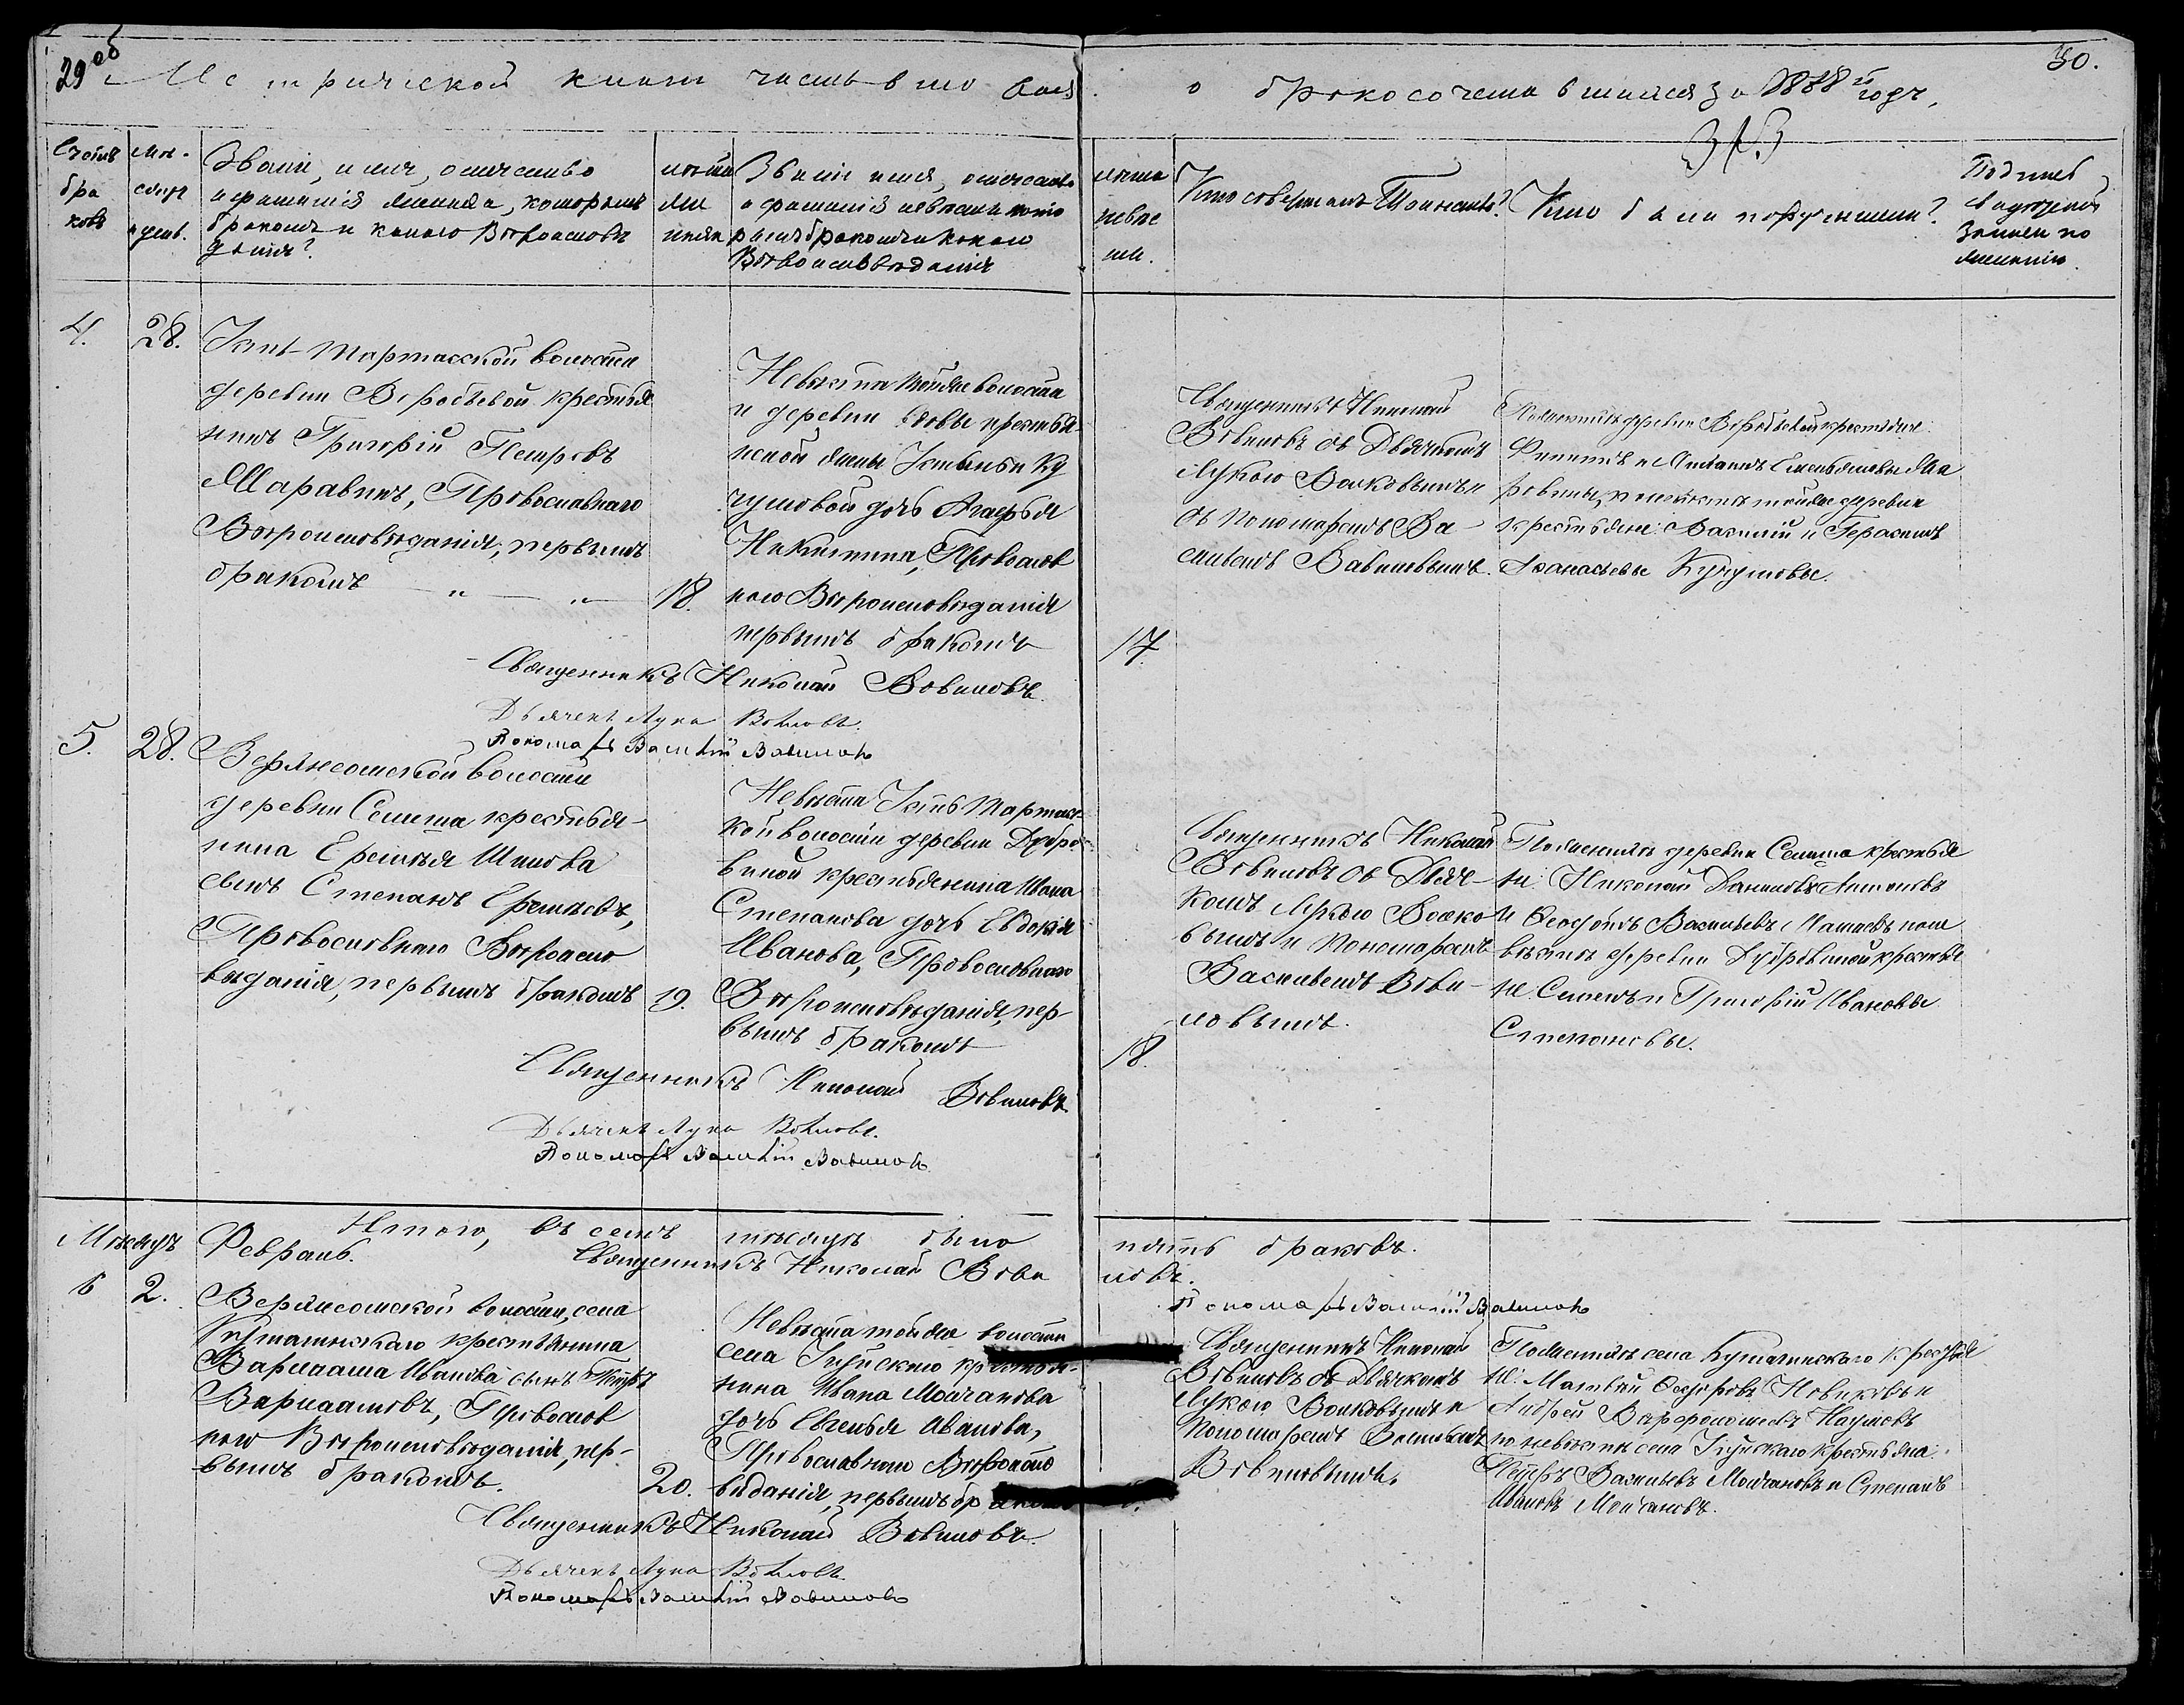 29 об
Метрической книги часть вто рая
о бракосочетавшихся за 1888й годъ.
30.
Счетъ
бра
ковъ
Мѣ-
сяцъ
и день.
Званіе, имя, отчество
и фамилія жениха, которымъ
бракомъ и какого Вѣроисповѣ
данія?
лѣта
же
ниха
Званіе имя, отечество
и фамилія невѣсты кото
рымъ бракомъ и какого
Вѣроисповѣданія
лѣта
невѣс
ты.
Кто совершалъ Таинство?
Кто были поручители?
Подпись
свидѣтелей
записи по
желанію
4.
28.
Усть-Тартасской волости
деревни Воробьевой крестья
нинъ Григорій Петровъ
Маравинъ, Православнаго
Вѣроисповѣданія, первымъ
бракомъ — „ — „ —
18.
Невѣста той же волости
и деревни вдовы крестьян
ской жены Устиньи Ку
чумовой дочь Агафья
Никитина, Православ
наго Вѣроисповѣданія
первымъ бракомъ
17.
Священникъ Николай
Вавиловъ съ Дьячкомъ
Лукою Волковымъ и
съ Пономаремъ Ва-
сильемъ Вавиловымъ.
По женихѣ деревни Воробьевой крестьяне:
Филиппъ и Емельяновы Ма
равины, по невѣстѣ той же деревни
крестьяне: Василій и Герасимъ
Афанасьевы Кучумовы.
Священникъ Николай Вавиловъ.
Дьячекъ Лука Волковъ.
Пономарь Василій Вавиловъ
5.
28.
Верхнеомской волости
деревни Сениша крестья-
нина Еремѣя Шипова
сынъ Степанъ Еремѣевъ,
Православнаго Вѣроиспо
вѣданія, первымъ бракомъ
19.
Невѣста Усть Тартасс-
кой волости деревни Дубро-
виной крестьянина Ивана
Степанова дочь Евдокія
Иванова, Православнаго
Вѣроисповѣданія, пер-
вымъ бракомъ
18.
Священникъ Николай
Вавиловъ съ Дьяч-
комъ Лукою Волко
вымъ и Пономаремъ
Васильемъ Вави-
ловымъ.
По женихѣ деревни Сениша крестья
не: Николай Даниловъ Антоновъ
и Ѳеодоръ Васильевъ по не
вѣстѣ деревни Дубровиной крестья
не: Семенъ и Григорій Ивановы
Степановы.
Священникъ Николай Вавиловъ.
Дьячекъ Лука Волковъ.
Пономарь Василій Вавиловъ.
Итого, въ семъ мѣсяцѣ было пять браковъ.
Священникъ Николай Вави ловъ.
Пономарь Василій Вавиловъ
Мѣсяцъ
Февраль.
6
2.
Верхнеомской волости, села
Кутатинскаго крестьянина
Варлаама Иванова сынъ Петръ
Варлаамовъ, Православ
наго Вѣроисповѣданія, пер-
вымъ бракомъ.
20.
Невѣста той же волости
села Ичинскаго крестья-
нина Ивана Молчанова
дочь Евгенья Иванова,
Православнаго Вѣроиспо
вѣданія, первымъ бракомъ
Священникъ Николай
Вавиловъ съ Дьячкомъ
Лукою Волковымъ и
Пономаремъ Васильемъ
Вавиловымъ.
По женихѣ села Кутатинскаго крестья
не: Матвѣй Ѳедоровъ Новиковъ и
Андрей Варфоломеевъ Наумовъ
по невѣстѣ села Ичинскаго крестьяне:
Петръ Васильевъ Молчановъ и Степанъ
Ивановъ Молчановъ.
Священникъ Николай Вавиловъ.
Дьячекъ Лука Волковъ.
Пономарь Василій Вавиловъ